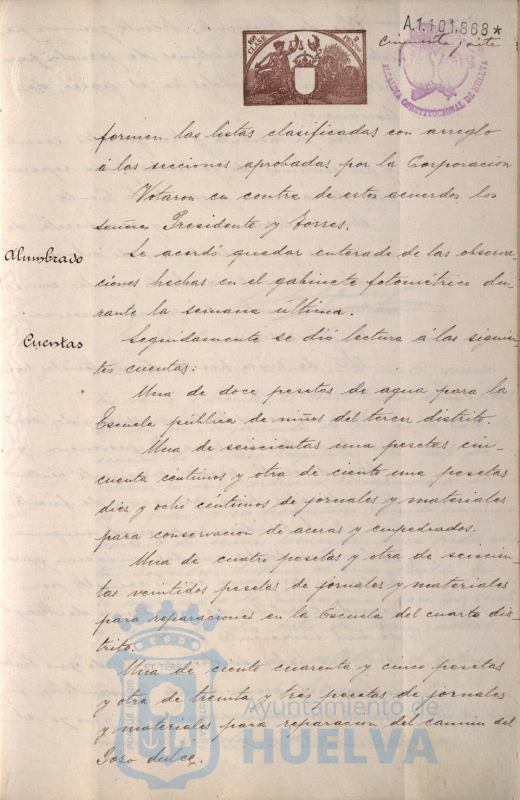 A.1.101,868*
cincuenta y siete
ALCALDIA CONSTITUCIONAL DE HUELVA
formen las listas clasificadas con arreglo
á las secciones aprobadas por la Corporacion
Votaron en contra de estos acuerdos los
señores Presidente y Torres.
Alumbrado
Se acordó quedar enterado de las observa-
ciones hechas en el gabinete fotométrico du-
rante la semana última.
Cuentas
Seguidamente se dió lectura á las siguien-
tes cuentas:
Una de doce pesetas de agua para la
Escuela pública de niños del tercer distrito.
Una de seiscientas una pesetas cin-
cuenta céntimos y otra de ciento una pesetas
diez y ocho céntimos de jornales y materiales
para conservacion de aceras y empedrados.
Una de cuatro pesetas y otra de seiscien-
tas veintidos pesetas de jornales y materiales
para reparaciones en la Escuela del cuarto dis-
trito.
Una de ciento cuarenta y cinco pesetas
y otra de treinta y tres pesetas de jornales
y materiales para reparacion del camino del
Pozo dulce.
Ayuntamiento de
HUELVA